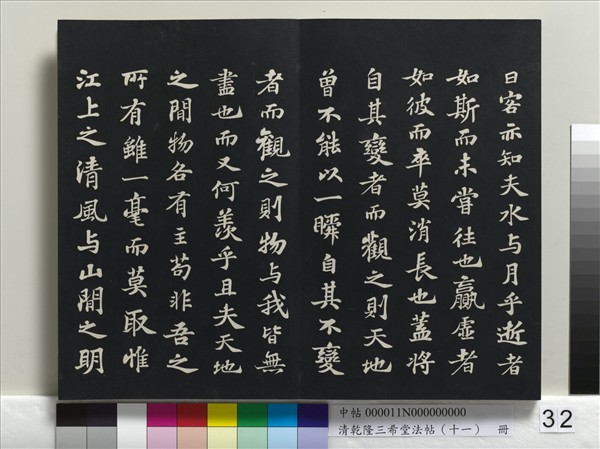 曰客亦知夫水与月乎逝者
如斯而未嘗往也贏虛者
如彼而卒莫消長也蓋将
自其變者而觀之則天地
曾不能以一瞬自其不變
者而觀之則物与我皆無
盡也而又何羨乎且夫天地
之間物各有主苟非吾之
所有雖一毫而莫取惟
江上之清風与山間之明
中帖 000011N000000000
清乾隆三希堂法帖（十一） 冊
32